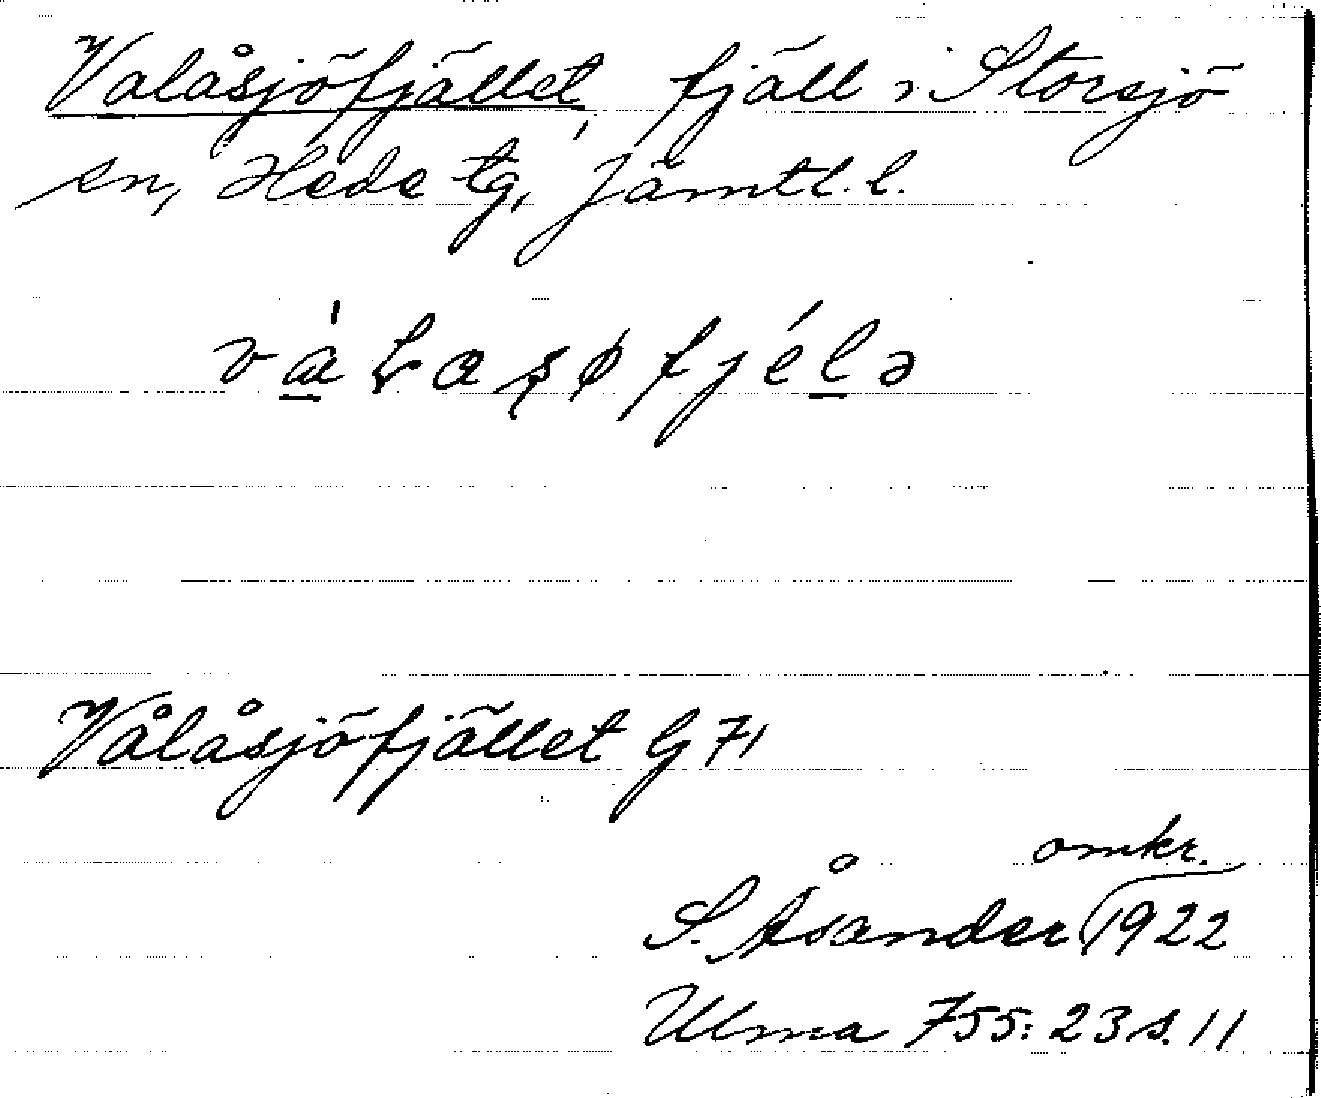 Valåsjöfjället, fjäll i Storsjö
sn, Hede tg, Jämtl. l.
Vålåsjöfjället G 71
omkr.
S. Åsander 1922
Ulma 755: 23 s. 11